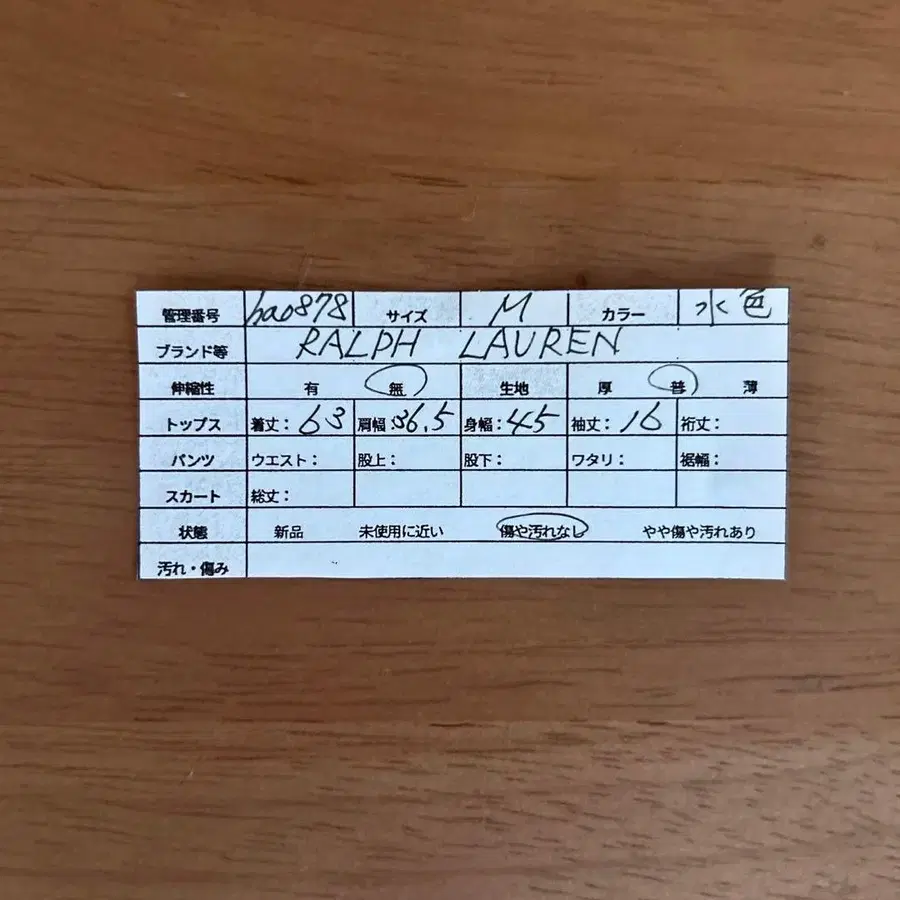 管理番号 hao878 サイズ M カラー 水色
ブランド等 RALPH LAUREN
伸縮性 有 無 生地 厚 普 薄
トップス 着丈: 63 肩幅: 36.5 身幅: 45 袖丈: 16 裄丈:
パンツ ウエスト: 股上: 股下: ワタリ: 裾幅:
スカート 総丈:
状態 新品 未使用に近い 傷や汚れなし やや傷や汚れあり
汚れ・傷み